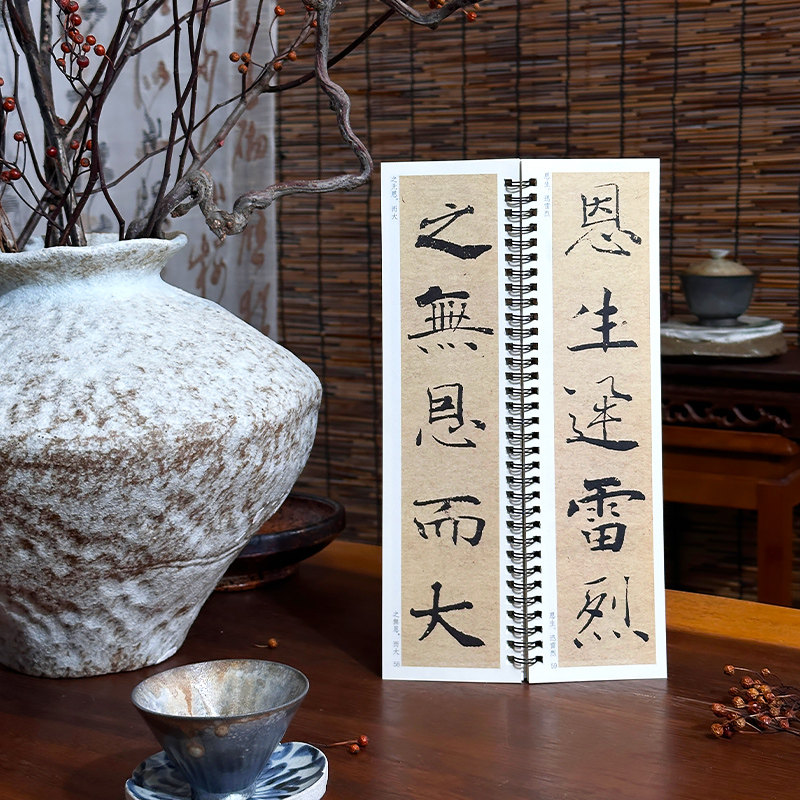 之无恩，而大
之無恩而大
之無恩，而大
58
恩生。迅雷烈
恩生迅雷烈
恩生。迅雷烈
59